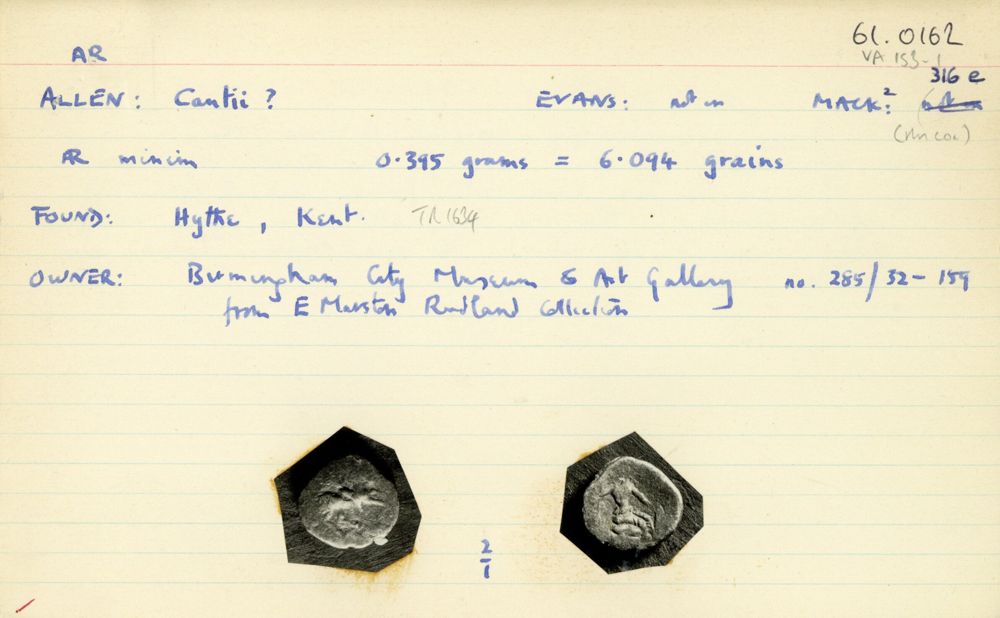 61.0162
AR
VA 153-1
316 e
ALLEN: Cantii ? EVANS: not in MACK:² not in
(this coin)
AR minim 0.395 grams = 6.094 grains
FOUND: Hythe, Kent. TR1634
OWNER: Birmingham City Museum & Art Gallery no. 285/32-159
from E Marston Rudland Collection
2/1